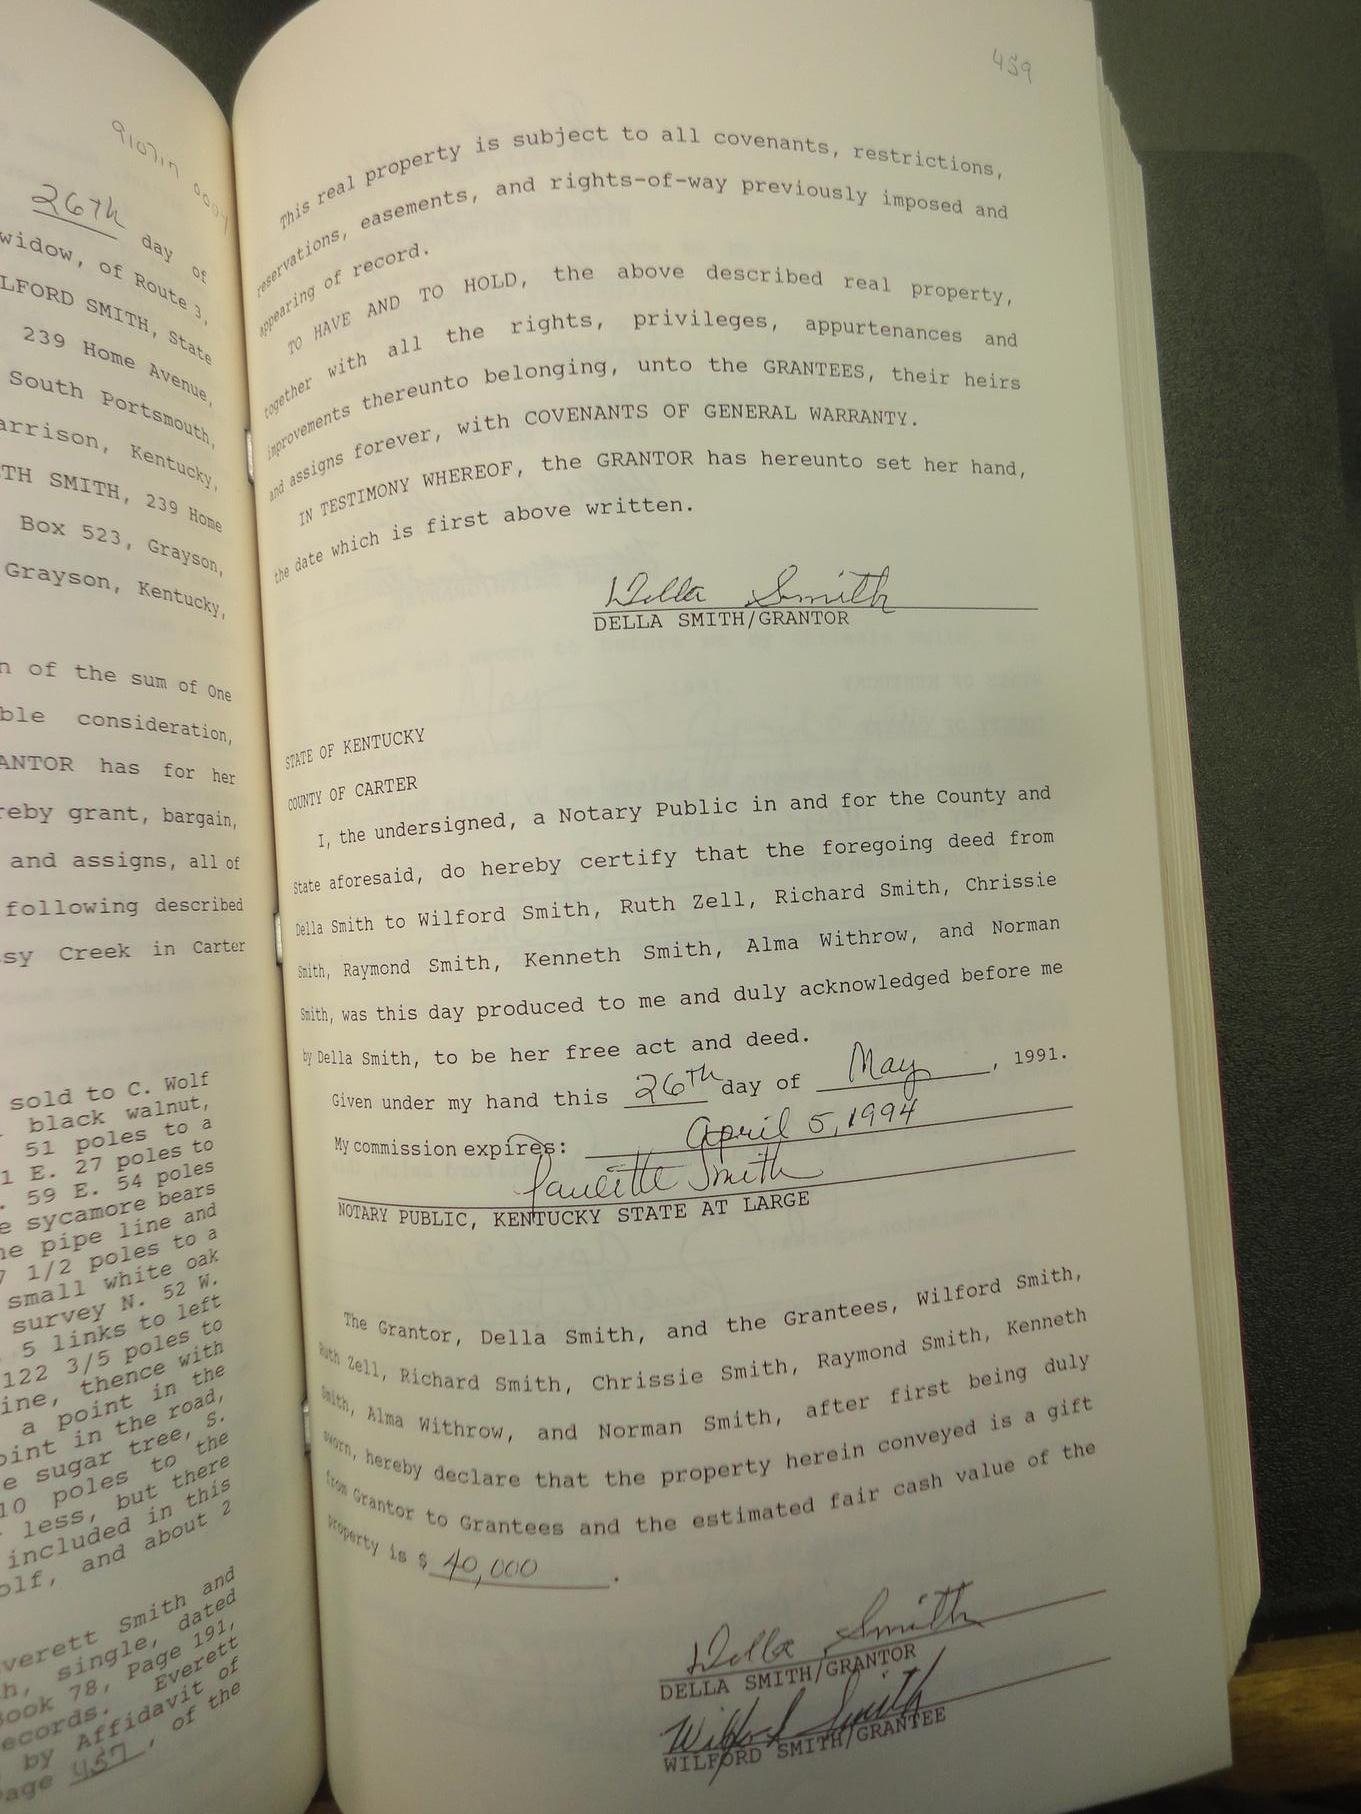 910717 0004
26th day of
widow, of Route 3,
LFORD SMITH, State
239 Home Avenue,
South Portsmouth,
arrison, Kentucky,
TH SMITH, 239 Home
Box 523, Grayson,
Grayson, Kentucky,
n of the sum of One
ble consideration,
ANTOR has for her
reby grant, bargain,
and assigns, all of
following described
sy Creek in Carter
sold to C. Wolf
black walnut,
51 poles to a
1 E. 27 poles to
. 59 E. 54 poles
e sycamore bears
ne pipe line and
7 1/2 poles to a
small white oak
survey N. 52 W.
5 links to left
122 3/5 poles to
ine, thence with
a point in the
oint in the road,
e sugar tree, S.
10 poles to the
less, but there
included in this
olf, and about 2
verett Smith and
h, single, dated
Book 78, Page 191,
ecords. Everett
by Affidavit of
Page 457, of the
459
This real property is subject to all covenants, restrictions,
reservations, easements, and rights-of-way previously imposed and
appearing of record.
TO HAVE AND TO HOLD, the above described real property,
together with all the rights, privileges, appurtenances and
improvements thereunto belonging, unto the GRANTEES, their heirs
and assigns forever, with COVENANTS OF GENERAL WARRANTY.
IN TESTIMONY WHEREOF, the GRANTOR has hereunto set her hand,
the date which is first above written.
Della Smith
DELLA SMITH/GRANTOR
STATE OF KENTUCKY
COUNTY OF CARTER
I, the undersigned, a Notary Public in and for the County and
State aforesaid, do hereby certify that the foregoing deed from
Della Smith to Wilford Smith, Ruth Zell, Richard Smith, Chrissie
Smith, Raymond Smith, Kenneth Smith, Alma Withrow, and Norman
Smith, was this day produced to me and duly acknowledged before me
by Della Smith, to be her free act and deed.
Given under my hand this 26th day of May, 1991.
My commission expires: April 5, 1994
Paulette Smith
NOTARY PUBLIC, KENTUCKY STATE AT LARGE
The Grantor, Della Smith, and the Grantees, Wilford Smith,
Ruth Zell, Richard Smith, Chrissie Smith, Raymond Smith, Kenneth
Smith, Alma Withrow, and Norman Smith, after first being duly
sworn, hereby declare that the property herein conveyed is a gift
from Grantor to Grantees and the estimated fair cash value of the
property is $ 40,000.
Della Smith
DELLA SMITH/GRANTOR
Wilford Smith
WILFORD SMITH/GRANTEE